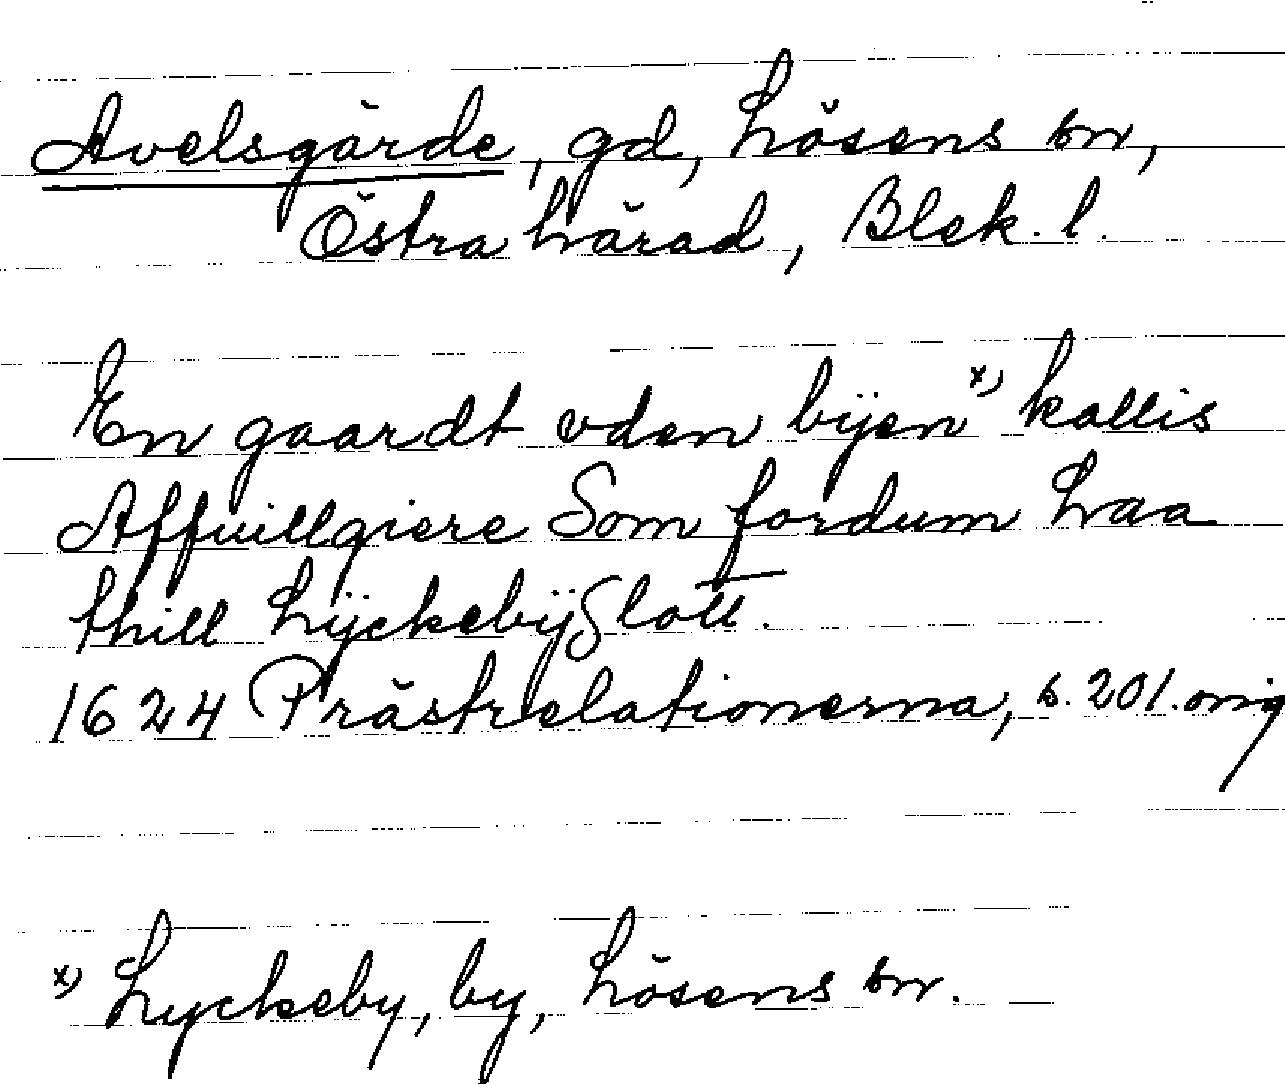 Avelsgärde, gd, Lösens sn,
Östra härad, Blek. l.
En gaardt vden bÿen x) kallis
Affuillgiere Som fordum laa
thill LÿckebÿSlott.
1624 Prästrelationerna, s. 201. orig
x) Lyckeby, by, Lösens sn.